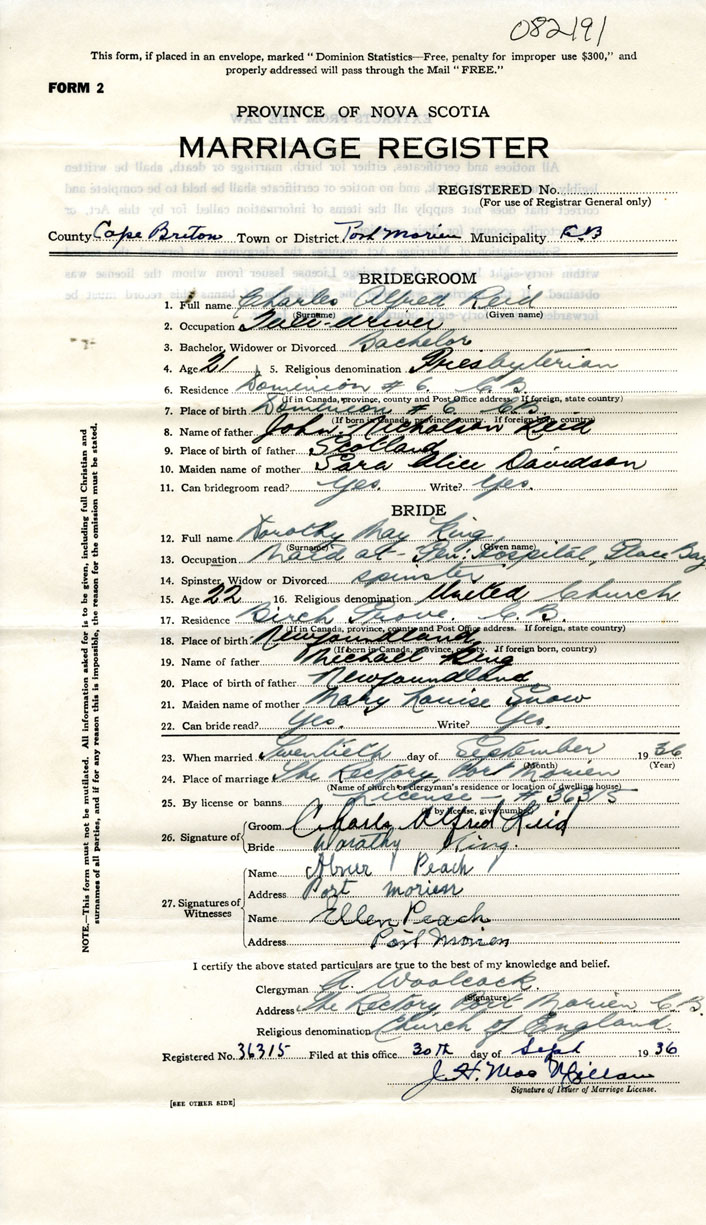 082191
This form, if placed in an envelope, marked "Dominion Statistics—Free, penalty for improper use $300," and
properly addressed will pass through the Mail "FREE."
FORM 2
PROVINCE OF NOVA SCOTIA
MARRIAGE REGISTER
REGISTERED No.
(For use of Registrar General only)
County Cape Breton Town or District Port Morien Municipality C.B
BRIDEGROOM
1. Full name Charles Alfred Reid
(Surname) (Given name)
2. Occupation -driver
3. Bachelor, Widower or Divorced Bachelor
4. Age 21 5. Religious denomination Presbyterian
6. Residence Dominion # 6. C.B.
(If in Canada, province, county and Post Office address. If foreign, state country)
7. Place of birth Dominion # 6. C.B.
(If born in Canada, province, county. If foreign born, country)
8. Name of father John Nicholson Reid
9. Place of birth of father Scotland
10. Maiden name of mother Sara Alice Davidson
11. Can bridegroom read? Yes. Write? Yes.
BRIDE
12. Full name Dorothy May King
(Surname) (Given name)
13. Occupation Maid at Gen. Hospital, Glace Bay
14. Spinster, Widow or Divorced spinster
15. Age 22 16. Religious denomination United Church
17. Residence Birch Grove, C.B.
(If in Canada, province, county and Post Office address. If foreign, state country)
18. Place of birth Newfoundland
(If born in Canada, province, county. If foreign born, country)
19. Name of father Michael King
20. Place of birth of father Newfoundland
21. Maiden name of mother Mary Louise Snow
22. Can bride read? Yes. Write? Yes.
23. When married Twentieth day of September 1936
(Month) (Year)
24. Place of marriage The Rectory, Port Morien
(Name of church or clergyman's residence or location of dwelling house)
25. By license or banns License - # 36315
(If by license, give number)
26. Signature of Groom Charles Alfred Reid
Bride Dorothy King.
27. Signatures of Witnesses
Name Abner Peach
Address Port Morien
Name Ellen Peach
Address Port Morien
I certify the above stated particulars are true to the best of my knowledge and belief.
Clergyman A. Woolcock
(Signature)
Address The Rectory, Port Morien C.B.
Religious denomination Church of England
Registered No. 36315 Filed at this office 30th day of Sept 1936
J. H. Mac Millan
Signature of Issuer of Marriage License.
[SEE OTHER SIDE]
NOTE.—This form must not be mutilated. All information asked for is to be given, including full Christian and
surnames of all parties, and if for any reason this is impossible, the reason for the omission must be stated.